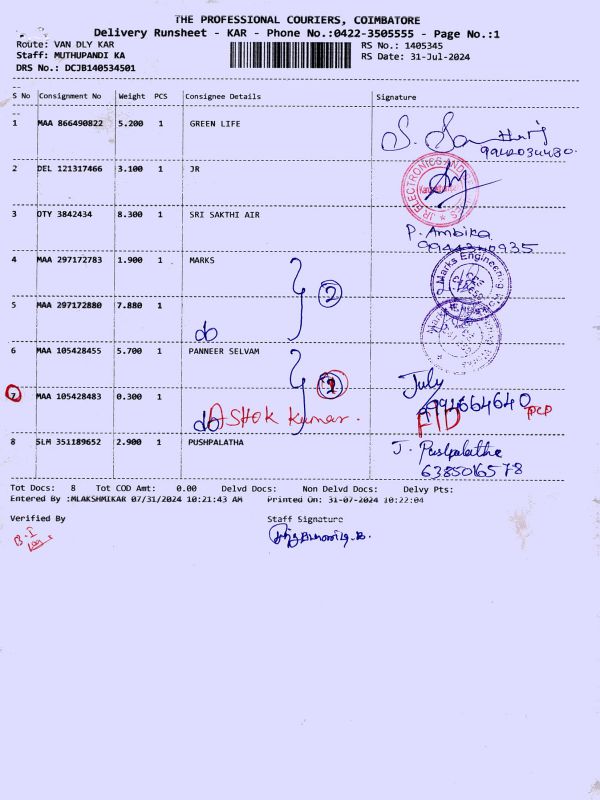 THE PROFESSIONAL COURIERS, COIMBATORE
Delivery Runsheet - KAR - Phone No.:0422-3505555 - Page No.:1
Route: VAN DLY KAR RS No.: 1405345
Staff: MUTHUPANDI KA RS Date: 31-Jul-2024
DRS No.: DCJB140534501
S No Consignment No Weight PCS Consignee Details Signature
1 MAA 866490822 5.200 1 GREEN LIFE
2 DEL 121317466 3.100 1 JR
JR ELECTRONICS
3 OTY 3842434 8.300 1 SRI SAKTHI AIR
P. Ambika
4 MAA 297172783 1.900 1 MARKS
2
Marks Engineering
5 MAA 297172880 7.880 1
do
6 MAA 105428455 5.700 1 PANNEER SELVAM
July
7 MAA 105428483 0.300 1
do Ashok Kumar.
8 SLM 351189652 2.900 1 PUSHPALATHA
J. Pushpalatha
6385016578
Tot Docs: 8 Tot COD Amt: 0.00 Delvd Docs: Non Delvd Docs: Delvy Pts:
Entered By :MLAKSHMIKAR 07/31/2024 10:21:43 AM Printed On: 31-07-2024 10:22:04
Verified By Staff Signature